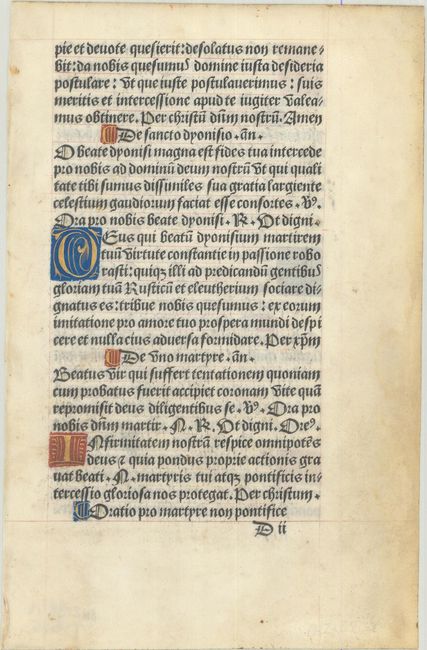 pie et deuote quesierit: desolatus non remane-
bit: da nobis quesumus domine iusta desideria
postulare: vt que iuste postulauerimus: suis
meritis et intercessione apud te iugiter valea-
mus obtinere. Per christū dn̄m nostrū. Amen
De sancto dyonisio. an.
O beate dyonisi magna est fides tua intercede
pro nobis ad dominū deum nostrū vt qui quali
tate tibi sumus dissimiles sua gratia largiente
celestium gaudiorum faciat esse confortes. ℣.
Ora pro nobis beate dyonisi. ℟. Vt digni.
DEus qui beatū dyonisium martirem
tuū virtute constantie in passione robo
rasti: quiqꝫ illi ad predicandū gentibus
gloriam tuā Rusticū et eleutherium sociare di-
gnatus es: tribue nobis quesumus: ex eorum
imitatione pro amore tuo prospera mundi despi
cere et nulla eius aduersa formidare. Per xp̄m
De vno martyre. an.
Beatus vir qui suffert tentationem quoniam
cum probatus fuerit accipiet coronam vite quā
repromisit deus diligentibus se. ℣. Ora pro
nobis dn̄m martir. N. ℟. Vt digni. Ore.
INfirmitatem nostrā respice omnipotēs
deus ⁊ quia pondus proprie actionis gra
uat beati. N. martyris tui atqꝫ pontificis in-
tercessio gloriosa nos protegat. Per christum.
Oratio pro martyre non pontifice
D ii